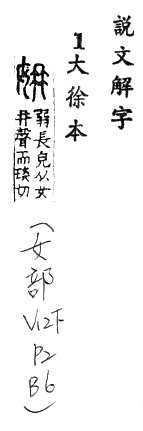 説文解字
1大徐本
姌
弱長皃从女
冄聲而琰切
(女部
V12下
P2
B6)